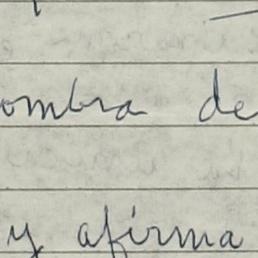 ombra de
y afirma